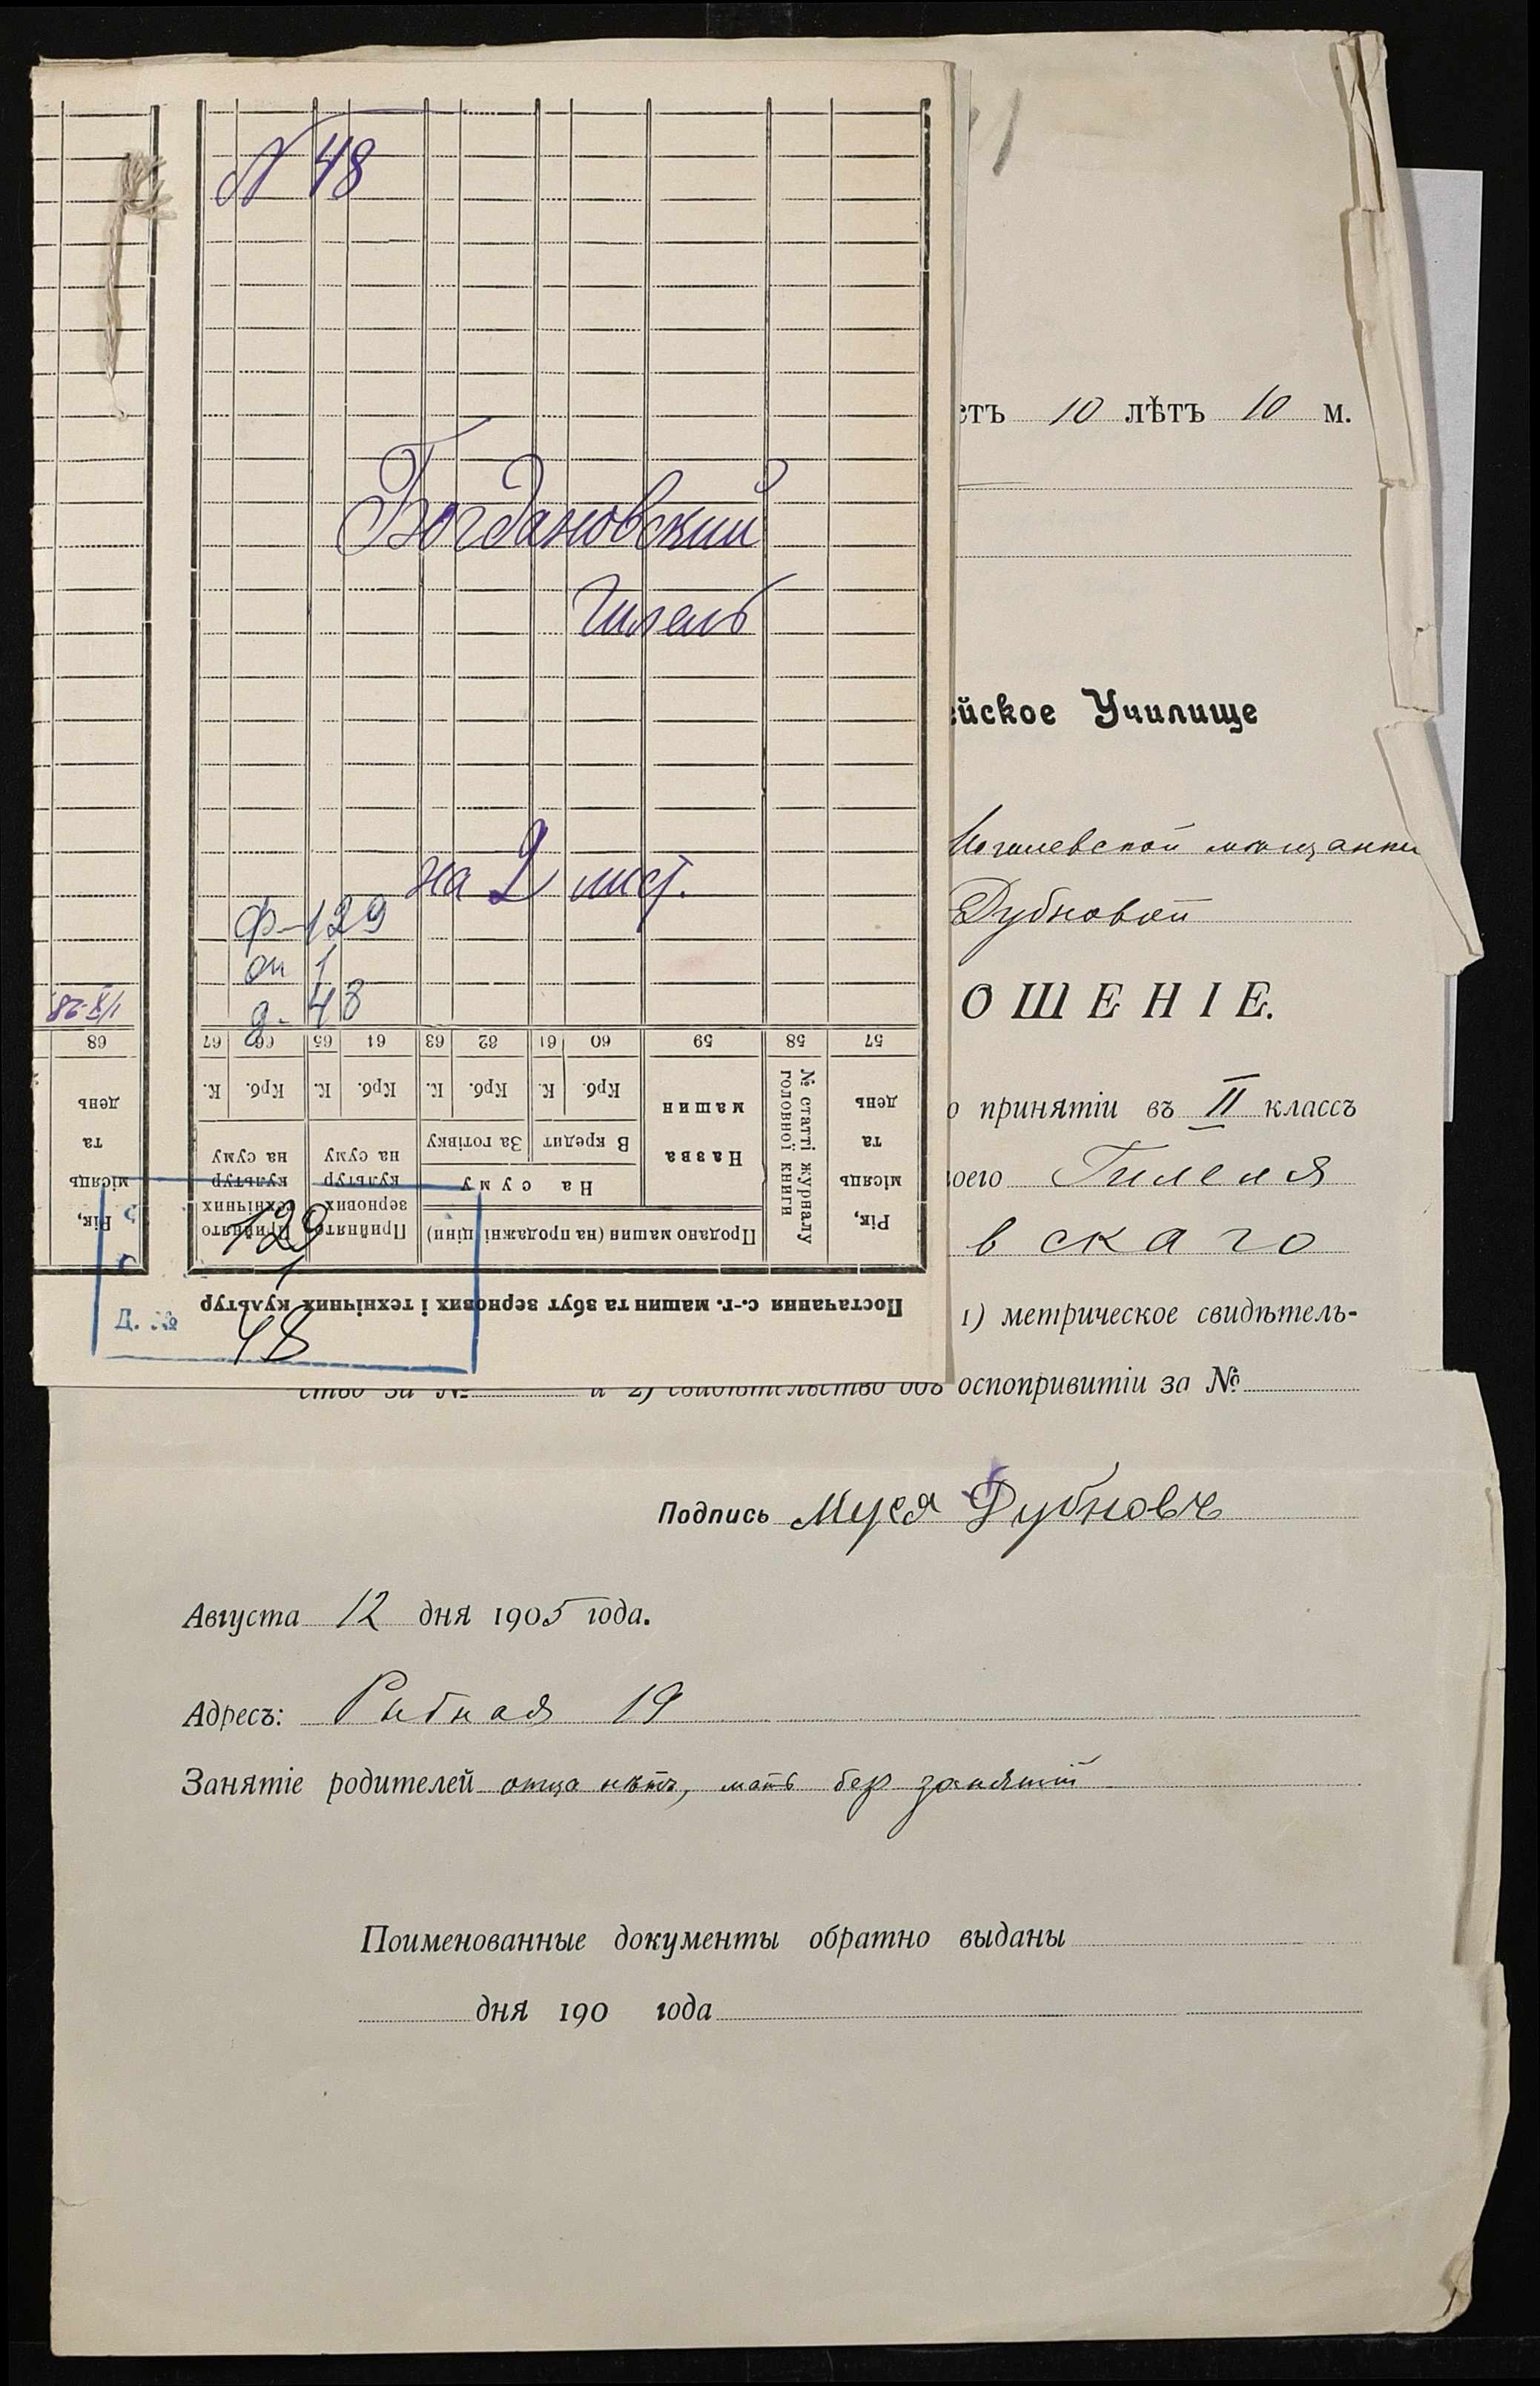 N 48
Богдановский
Гилель
на 2 лист.
ф-129
оп 1
д. 48
1/X-28
68 67 66 65 64 63 62 61 60 59 58 57
день
та
місяць
Рік,
К. Крб. К. Крб. К. Крб. К. Крб.
Прийнято технічних культур на суму
Прийнято зернових культур на суму
За готівку
В кредит
На суму
Продано машин (на продажні ціни)
Назва машин
№ статті журналу головної книги
Рік, місяць та день
Постачання с.-г. машин та збут зернових і технічних культур
129
1
Д. №
48
етъ 10 лѣтъ 10 м.
ейское Училище
Могилевской мѣщанки
Дубновой
ОШЕНІЕ.
о принятіи въ II классъ
моего Гилеля
вскаго
1) метрическое свидѣтель-
ство за № и 2) свидѣтельство объ оспопривитіи за №
Подпись Муся Дубновъ
Августа 12 дня 1905 года.
Адресъ: Рыбная 19
Занятіе родителей отца нѣтъ, мать без занятій
Поименованные документы обратно выданы
дня 190 года